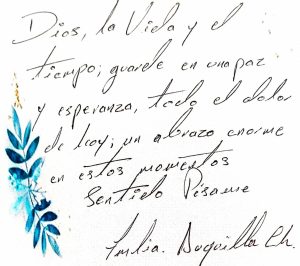 Dios, la Vida y el
tiempo; guarde en una paz
y esperanza, todo el dolor
de hoy; un abrazo enorme
en estos momentos
Sentido Pésame
Emilia. Buquilla Ch.